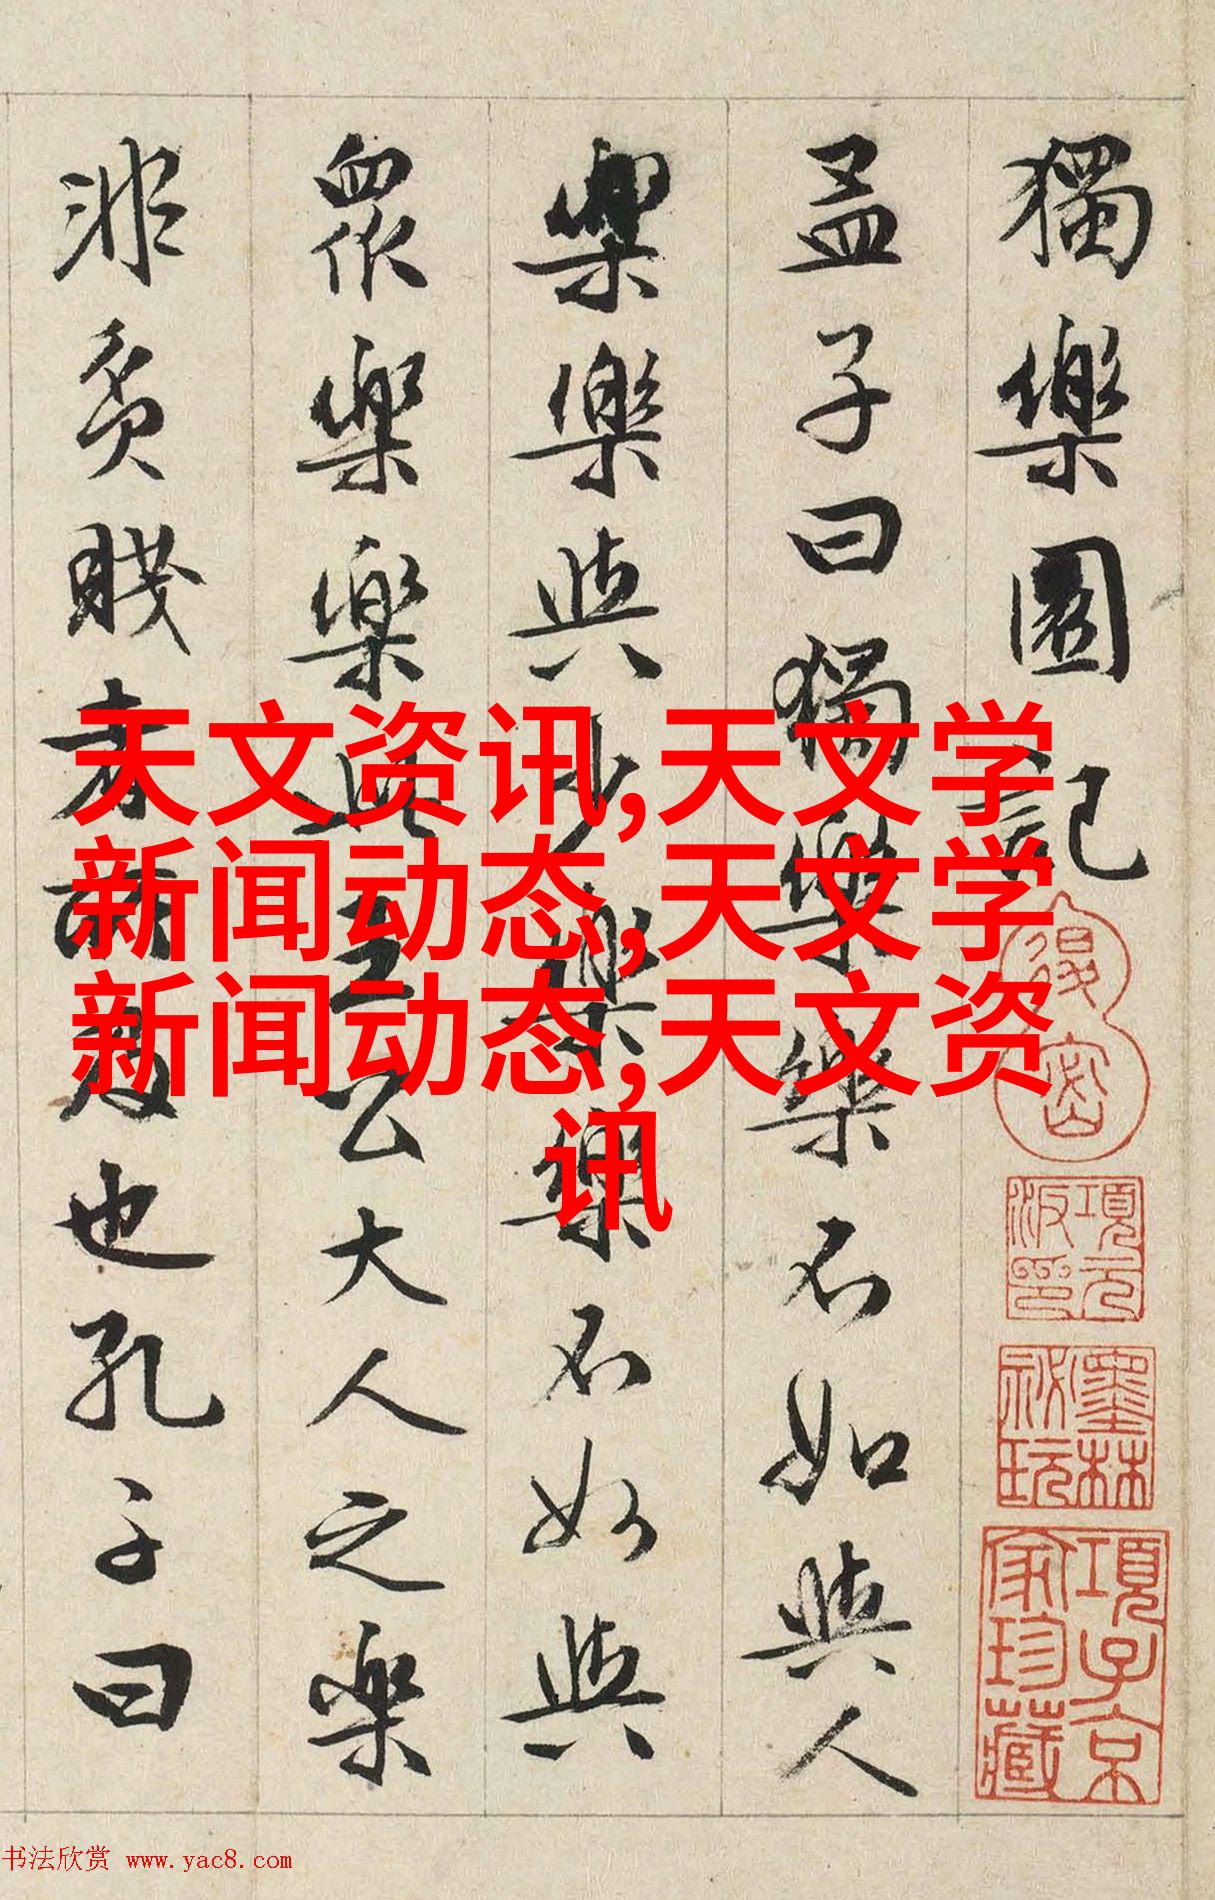 獨樂園記
孟子曰獨樂樂不如與人
樂樂與少樂樂不如與
眾樂樂此王公大人之樂
非貧賤者所及也孔子曰
項元汴印
墨林秘玩
項子京家珍藏
天文资讯,天文学
新闻动态,天文学
新闻动态,天文资
讯
书法欣赏 www.yac8.com